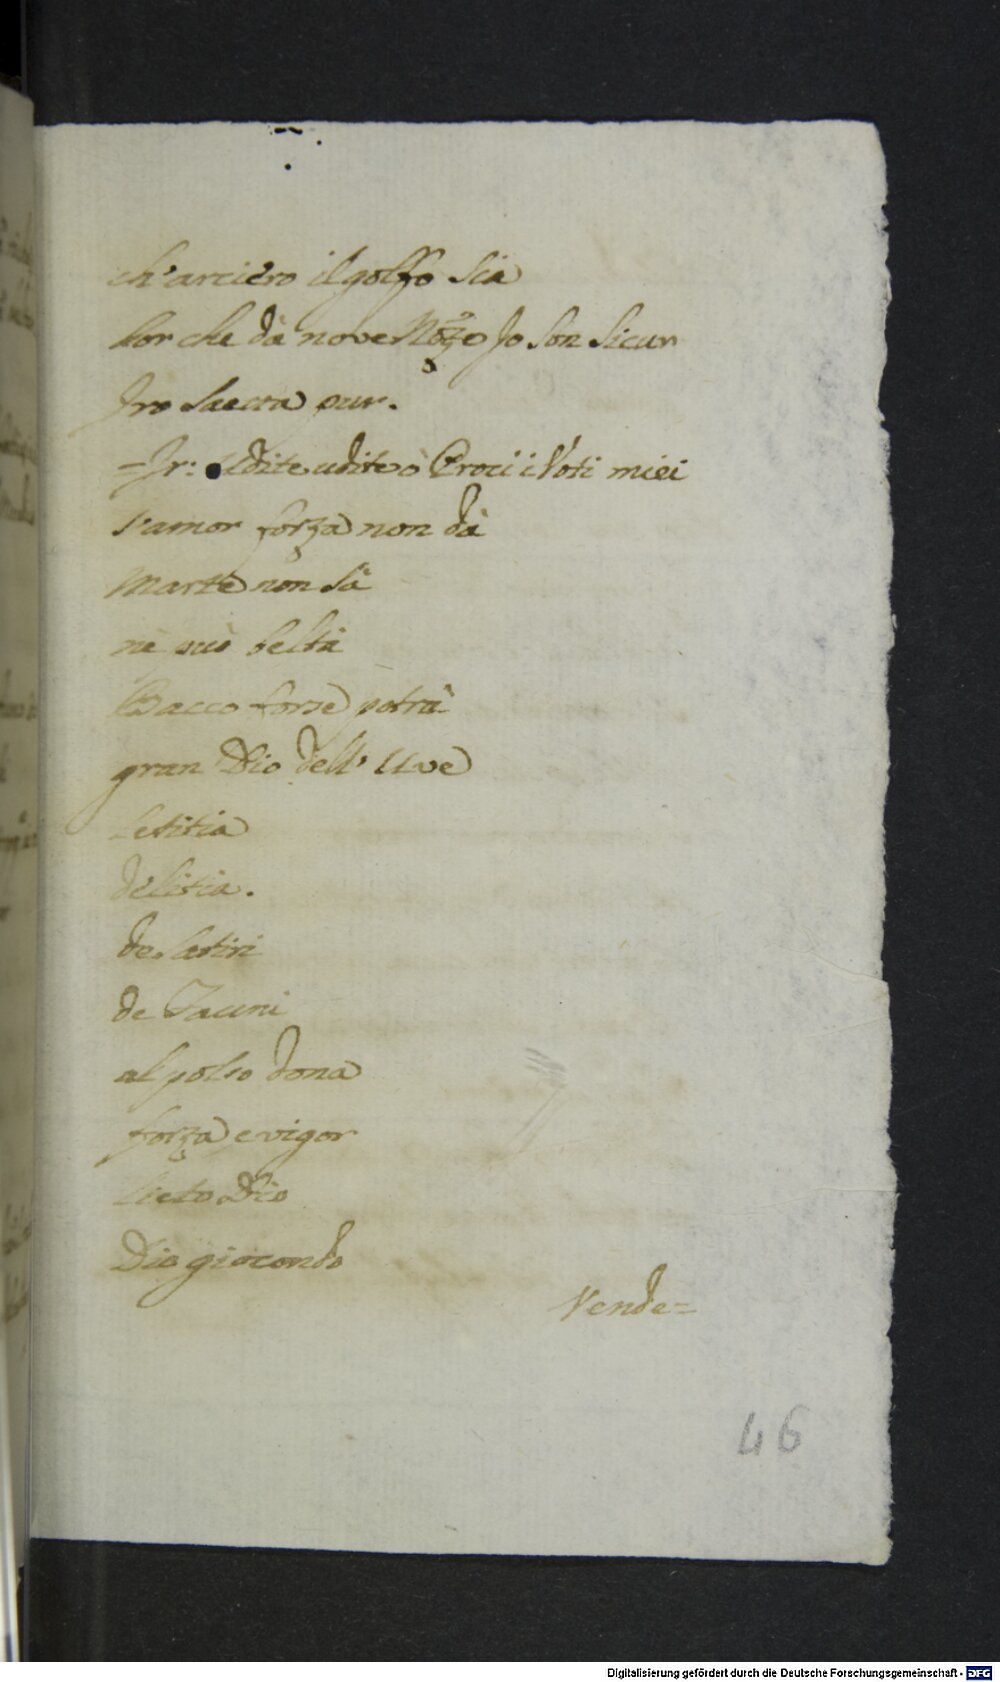 ch'arciero il golfo sia
hor che dà nove Nozze Jo son sicur
Jro saetta pur.
=Jr: Udite udite ò Eroci i Voti miei
s'amor forza non dà
Marte non sà
nè può beltà
Bacco forse potrà
gran Dio dell' Uve
letitia
delitia.
de satiri
de Fauni
al polso dona
forza, e vigor
lieto Dio
Dio giocondo
Vende=
46
Digitalisierung gefördert durch die Deutsche Forschungsgemeinschaft - DFG